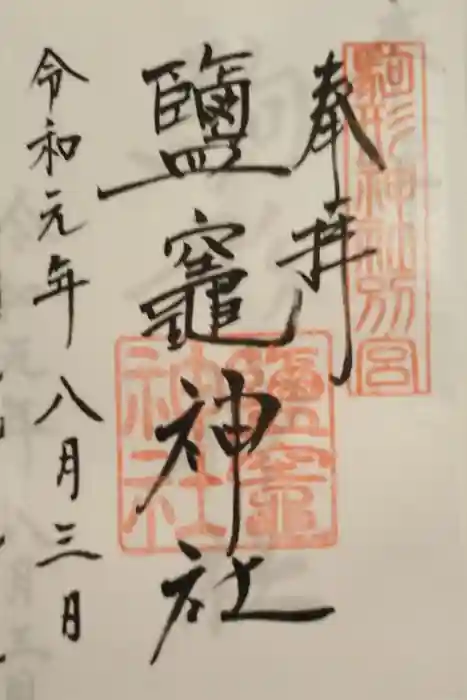 奉拝
駒形神社別宮
鹽竈神社
鹽竈神社
令和元年八月三日